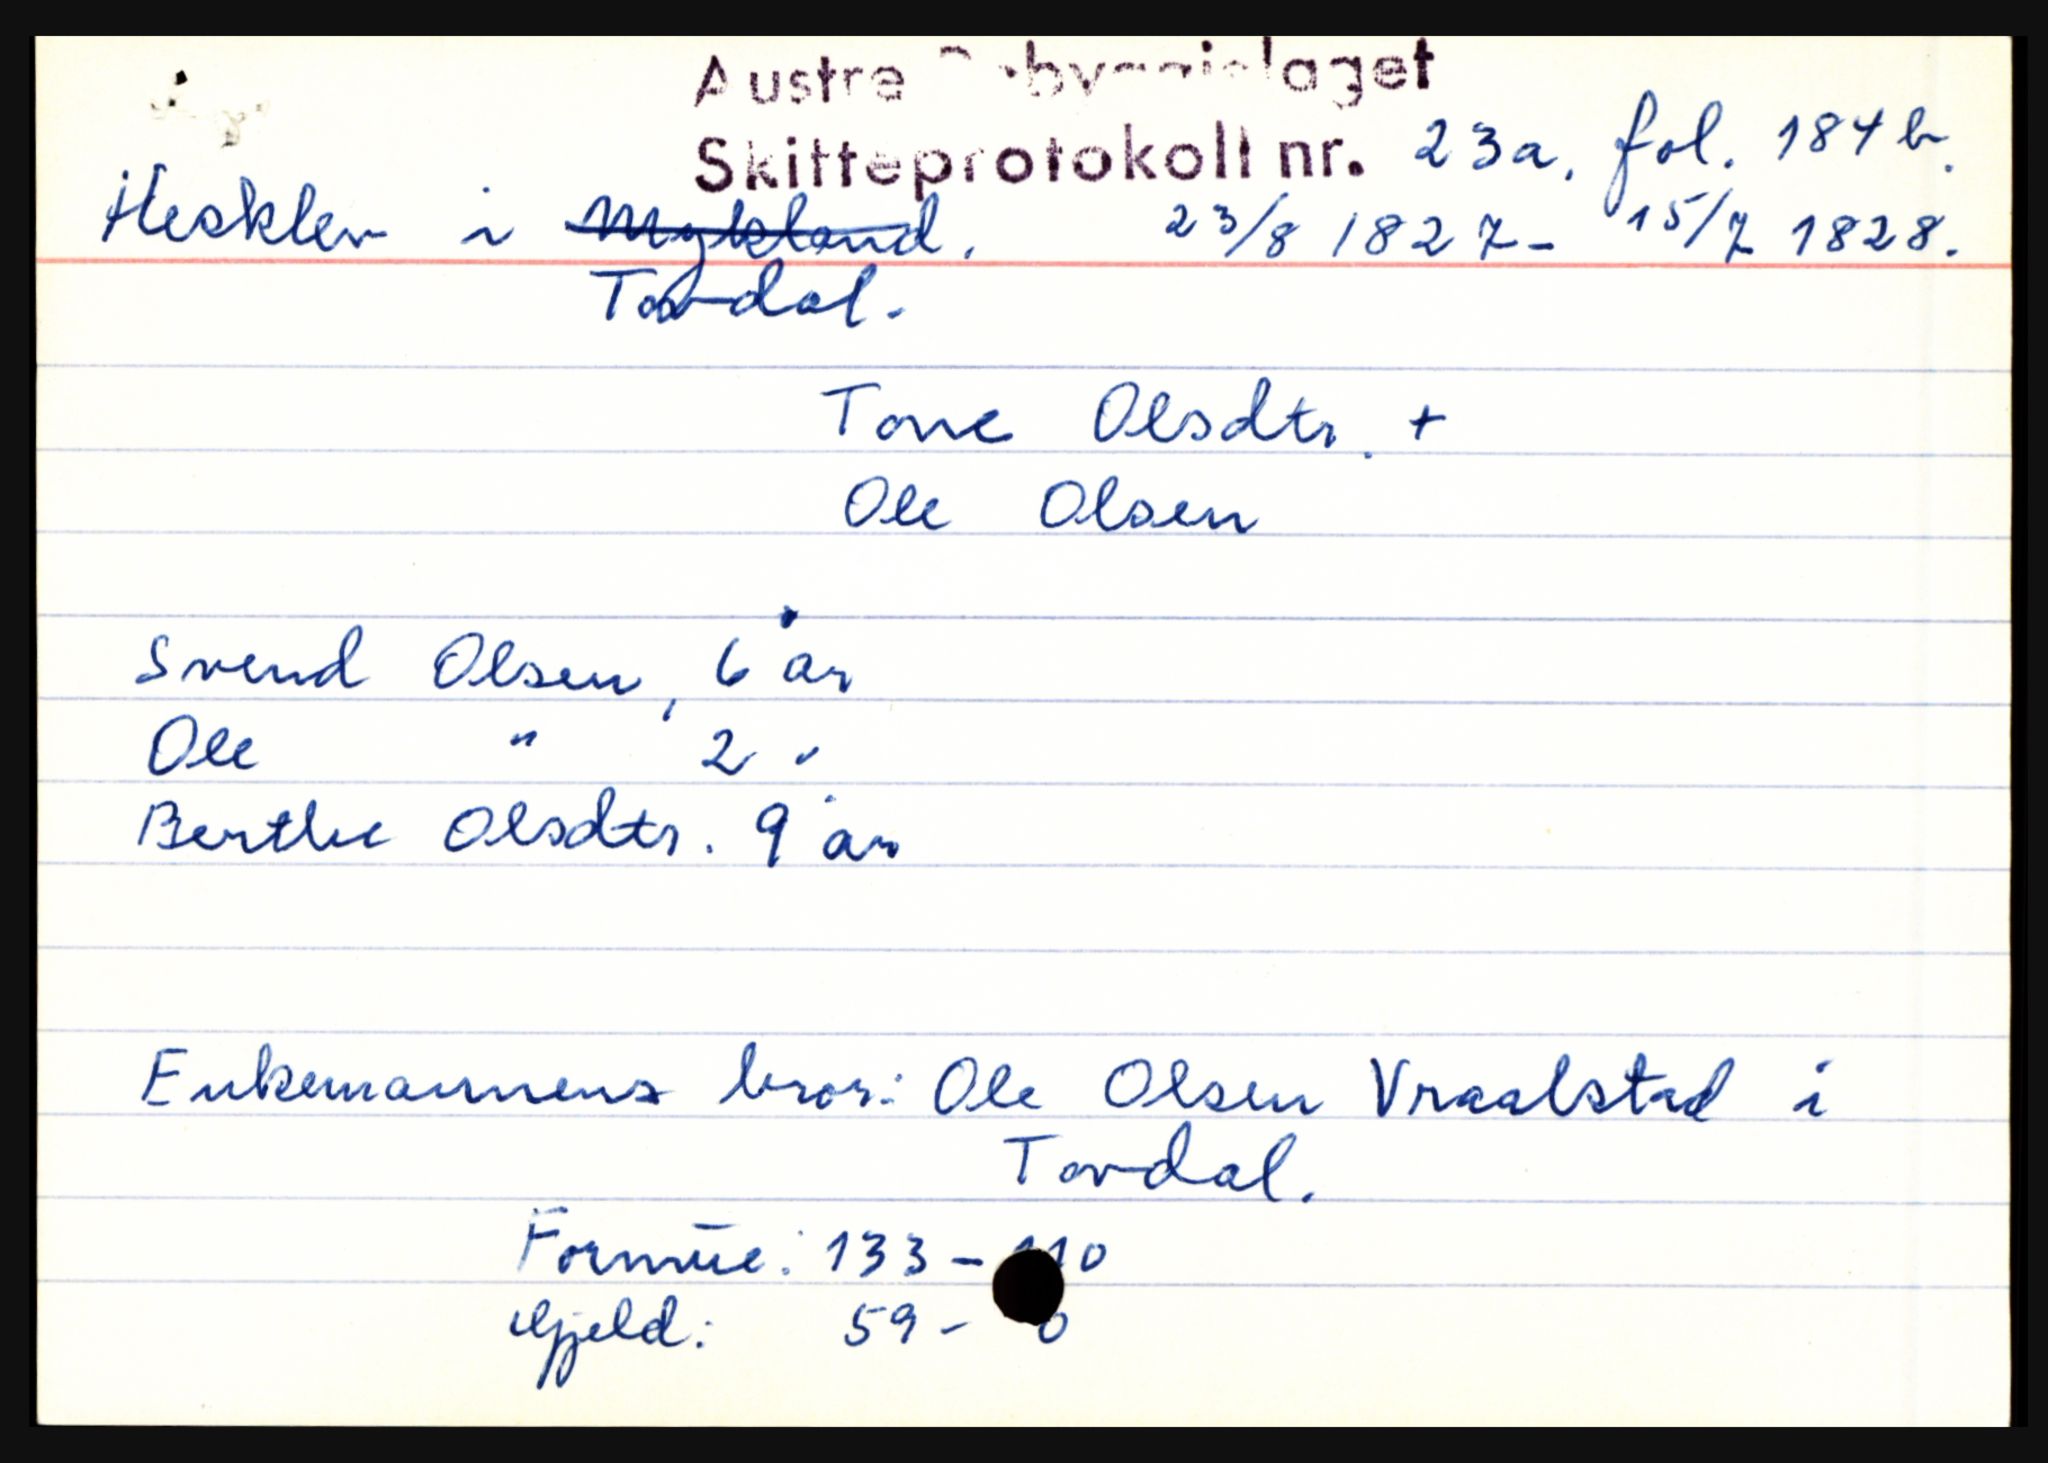 Austre laget
Skifteprotokoll nr. 23a, fol. 184 b.
Hesklev i Mykland. 23/8 1827 - 15/7 1828.
Tovdal.
Tone Olsdtr. +
Ole Olsen
Svend Olsen, 6 år
Ole " 2 "
Berthe Olsdtr. 9 år
Enkemannens bror: Ole Olsen Vraalstad i
Tovdal.
Formue: 133 -
Gjeld: 59 -